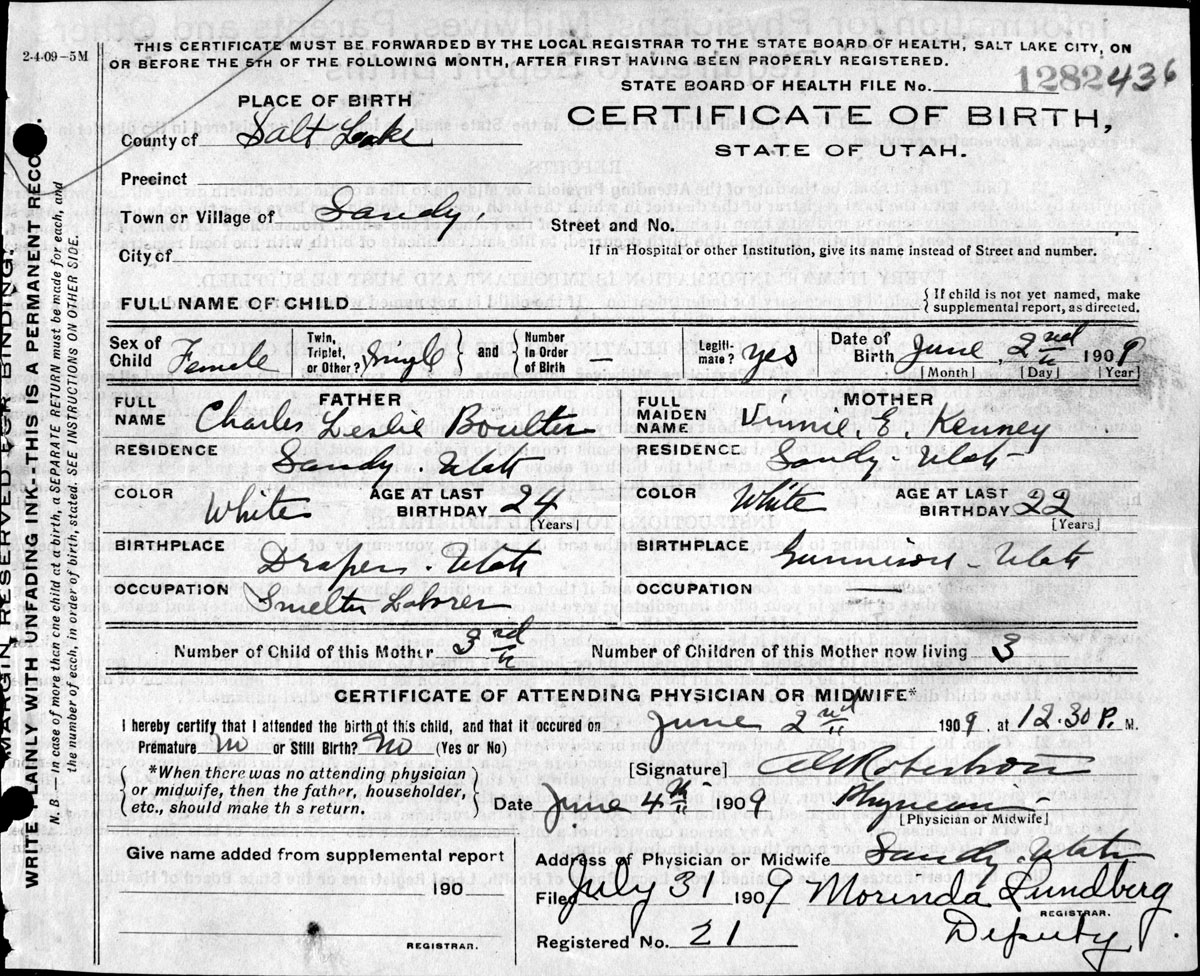 2-4-09-5M
THIS CERTIFICATE MUST BE FORWARDED BY THE LOCAL REGISTRAR TO THE STATE BOARD OF HEALTH, SALT LAKE CITY, ON
OR BEFORE THE 5TH OF THE FOLLOWING MONTH, AFTER FIRST HAVING BEEN PROPERLY REGISTERED.
STATE BOARD OF HEALTH FILE No. 1282436
PLACE OF BIRTH
CERTIFICATE OF BIRTH,
STATE OF UTAH.
County of Salt Lake
Precinct
Town or Village of Sandy.
Street and No.
City of
If in Hospital or other Institution, give its name instead of Street and number.
FULL NAME OF CHILD
{ If child is not yet named, make
supplemental report, as directed.
Sex of Child Female Twin, Triplet, or Other? Single } and { Number In Order of Birth Legiti- mate? yes Date of Birth June, 2nd 1909
[Month] [Day] [Year]
FATHER
MOTHER
FULL NAME Charles Leslie Boulter
FULL MAIDEN NAME Vinnie E. Kenney
RESIDENCE Sandy. Utah
RESIDENCE Sandy Utah
COLOR White AGE AT LAST BIRTHDAY 24 [Years]
COLOR White AGE AT LAST BIRTHDAY 22 [Years]
BIRTHPLACE Draper. Utah
BIRTHPLACE Gunnison - Utah
OCCUPATION Smelter Laborer
OCCUPATION
Number of Child of this Mother 3rd
Number of Children of this Mother now living 3
CERTIFICATE OF ATTENDING PHYSICIAN OR MIDWIFE*
I hereby certify that I attended the birth of this child, and that it occurred on June 2nd 1909, at 12.30 P. M.
Premature no or Still Birth? No (Yes or No)
{ *When there was no attending physician
or midwife, then the father, householder,
etc., should make th s return. }
[Signature] Robertson
Date June 4th 1909 Physician
[Physician or Midwife]
Give name added from supplemental report
190
REGISTRAR.
Address of Physician or Midwife Sandy. Utah
Filed July 31 1909 Morinda Lundberg
REGISTRAR.
Deputy
Registered No. 21
MARGIN RESERVED FOR BINDING.
WRITE PLAINLY WITH UNFADING INK-THIS IS A PERMANENT RECO
N. B.-In case of more than one child at a birth, a SEPARATE RETURN must be made for each, and
the number of each, in order of birth, stated. SEE INSTRUCTIONS ON OTHER SIDE.